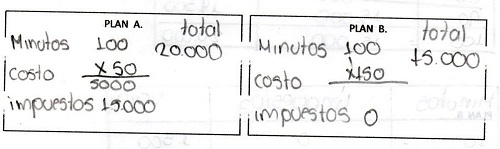 PLAN A. total
Minutos 100 20.000
costo x 50
5000
impuestos 15.000
PLAN B. total
Minutos 100 15.000
costo x150
impuestos 0